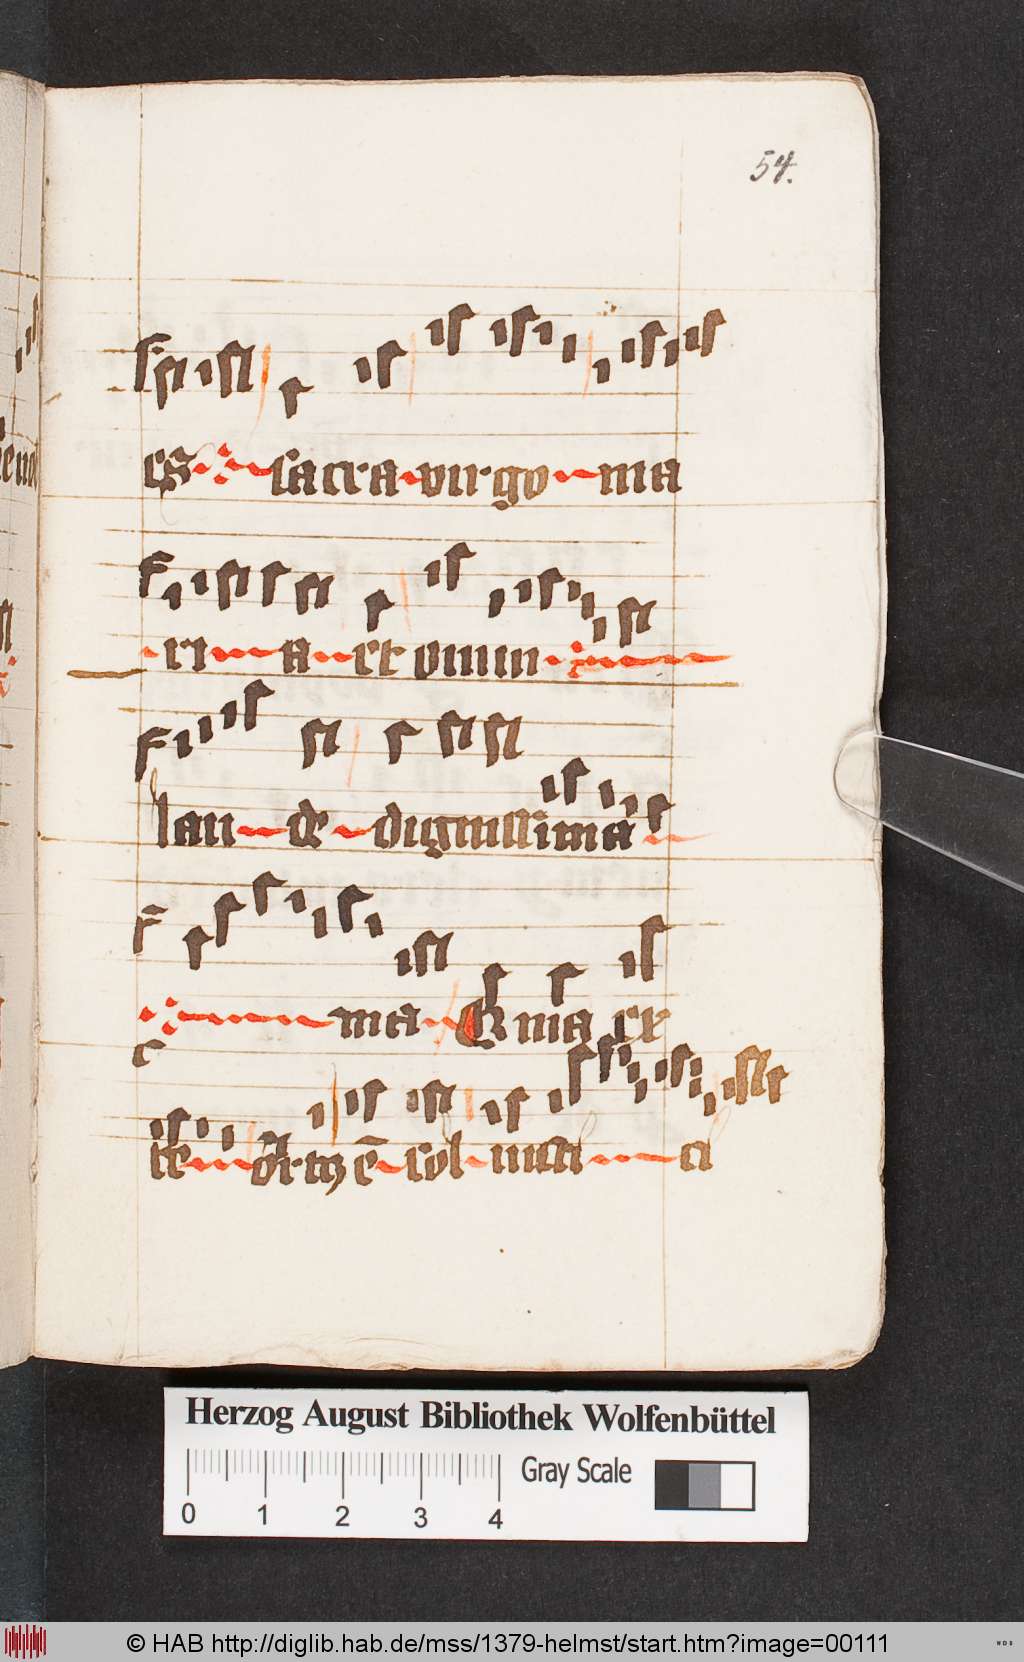 54.
es sacra virgo ma
ri a et omni
lau de dignissima
ma Q̄ nia ex
te ort9 ē sol iusti ci
Herzog August Bibliothek Wolfenbüttel
0 1 2 3 4 Gray Scale
© HAB http://diglib.hab.de/mss/1379-helmst/start.htm?image=00111